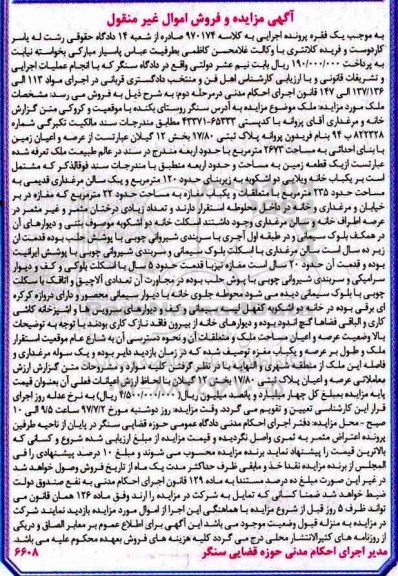 آگهی مزایده و فروش اموال غیر منقول
به موجب یک فقره پرونده اجرایی به کلاسه ۹۷۰۱۷۴ صادره از شعبه ۱۴ دادگاه حقوقی رشت له یاسر
کاردوست و فریده کلانتری با وکالت غلامحسن کاظمی بطرفیت عباس پاسیار مبارکی بخواسته نیابت
به پرداخت ۱۹۰/۰۰۰/۰۰۰ ریال بابت نیم عشر دولتی واقع در دادگاه سنگر که با انجام عملیات اجرایی
و تشریفات قانونی و با ارزیابی کارشناس اهل فن و منتخب دادگستری قربانی در اجرای مواد ۱۱۳ الی
۱۳۷/۱۳۶ الی ۱۴۷ قانون اجرای احکام مدنی در مرحله دوم، به شرح ذیل به فروش می رسد: مشخصات
ملک مورد مزایده: ملک موضوع مزایده به آدرس سنگر روستای یکنده با موقعیت و کروکی متن گزارش
خانه و مرغداری آقای پروانه با کدپستی ۶۵۳۳۳-۴۳۳۷۱ مطابق مندرجات سند مالکیت تکبرگی شماره
۸۲۲۳۲۸ ب ۹۴ بنام فریدون پروانه پلاک ثبتی ۱۷/۸۰ بخش ۱۲ گیلان عبارتست از عرصه و اعیان زمین
با بنای احداثی به مساحت ۲۶۷۳ مترمربع با حدود اربعه مندرج در سند در عالم طبیعت ملک تعرفه شده
عبارتست از یک قطعه زمین به مساحت و حدود اربعه منطبق با مندرجات سند فوق الذکر که مشتمل
است بر یکباب خانه ویلایی دو اشکوبه به زیربنای حدود ۱۲۰ مترمربع و یک سالن مرغداری قدیمی به
مساحت حدود ۲۳۵ مترمربع با متعلقات و یکباب مغازه به مساحت حدود ۲۲ مترمربع که مغازه در بر
خیابان و مرغداری و خانه در داخل محوطه استقرار دارند و تعداد زیادی درختان مثمر و غیر مثمر در
عرصه اطراف خانه و سالن مرغداری وجود داشتند اسکلت خانه دو اشکوبه موصوف بتنی و دیوارهای آن
در همکف بلوک سیمانی و در طبقه اول آجری با سربندی شیروانی چوبی با پوشش حلب بوده قدمت آن
زیر ده سال است سالن مرغداری با اسکلت بلوک سیمانی و سربندی شیروانی چوبی با پوشش ایرانیت
بوده و قدمت آن حدود ۲۰ سال است مغازه نیز با قدمت حدود ۵ سال با اسکلت بلوکی و کف و دیوار
سرامیکی و سربندی شیروانی چوبی با پوش حلب بوده در مجاورت آن تعدادی آلاچیق و اتاقک با اسکلت
چوبی یا بلوک سیمانی دیده می شود محوطه جلوی خانه با دیوار سیمانی محصور و دارای دروازه کرکره
ای برقی بوده در خانه دو اشکوبه کفها لیسه سیمانی و کف و دیوارهای سرویس ها و آشپزخانه کاشی
کاری و الباقی فضاها گچ اندود بوده و دیوارهای خانه از بیرون فاقد نازک کاری بودند با توجه به توضیحات
بالا وضعیت عرصه و اعیان مساحت ملک و متعلقات آن و نحوه دسترسی آن به شارع عام موقعیت استقرار
ملک و طول بر عرصه و یکباب مغزه توصیف شده که در زمان بازدید دایر بوده و یک سوله مرغداری و
فاصله این ملک از منطقه شهری و النهایه با در نظر گرفتن کلیه موارد و مشروحات متن گزارش ارزش
معاملاتی عرصه و اعیان پلاک ثبتی ۱۷/۸۰ بخش ۱۲ گیلان با لحاظ ارزش اعیانات فعلی آن بعنوان قیمت
پایه مزایده بمبلغ کل چهار میلیارد و پانصد میلیون ریال (۴/۵۰۰/۰۰۰/۰۰۰ ریال) به نرخ عدله روز اجرای
قرار این کارشناسی تعیین و تقویم می گردد. وقت مزایده: روز دوشنبه مورخ ۹۷/۷/۲ ساعت ۹/۵ الی ۱۰
صبح - محل مزایده: دفتر اجرای احکام مدنی دادگاه عمومی حوزه قضایی سنگر در پایان از ناحیه طرفین
پرونده اعتراض مثمر به ثمری واصل نگردیده و قیمت مزایده از مبلغ ارزیابی شده شروع و کسانی که
بالاترین قیمت را پیشنهاد نماید برنده مزایده محسوب می شوند و مبلغ ۱۰ درصد پیشنهادی را فی
المجلس از برنده مزایده نقدا اخذ و مابقی ظرف حداکثر مدت یک ماه از تاریخ فروش وصول خواهد شد
در غیر این صورت مبلغ ده درصد مستندا به ماده ۱۲۹ قانون اجرای احکام مدنی به نفع صندوق دولت
ضبط خواهد شد ضمنا کسانی که تمایل به شرکت در مزایده را ارند وفق ماده ۱۲۶ همان قانون می
تواند ظرف ۵ روز قبل از شروع مزایده با هماهنگی این اجرا از اموال مورد مزایده بازدید نمایند شرکت
در مزایده به منزله قبول وضعیت موجود می باشد این آگهی برای اطلاع عموم بر معابر الصاق و دریکی
از روزنامه های کثیرالانتشار محلی درج می گردد کلیه هزینه های فروش بعهده محکوم علیه می باشد
مدیر اجرای احکام مدنی حوزه قضایی سنگر ۶۶۰۸